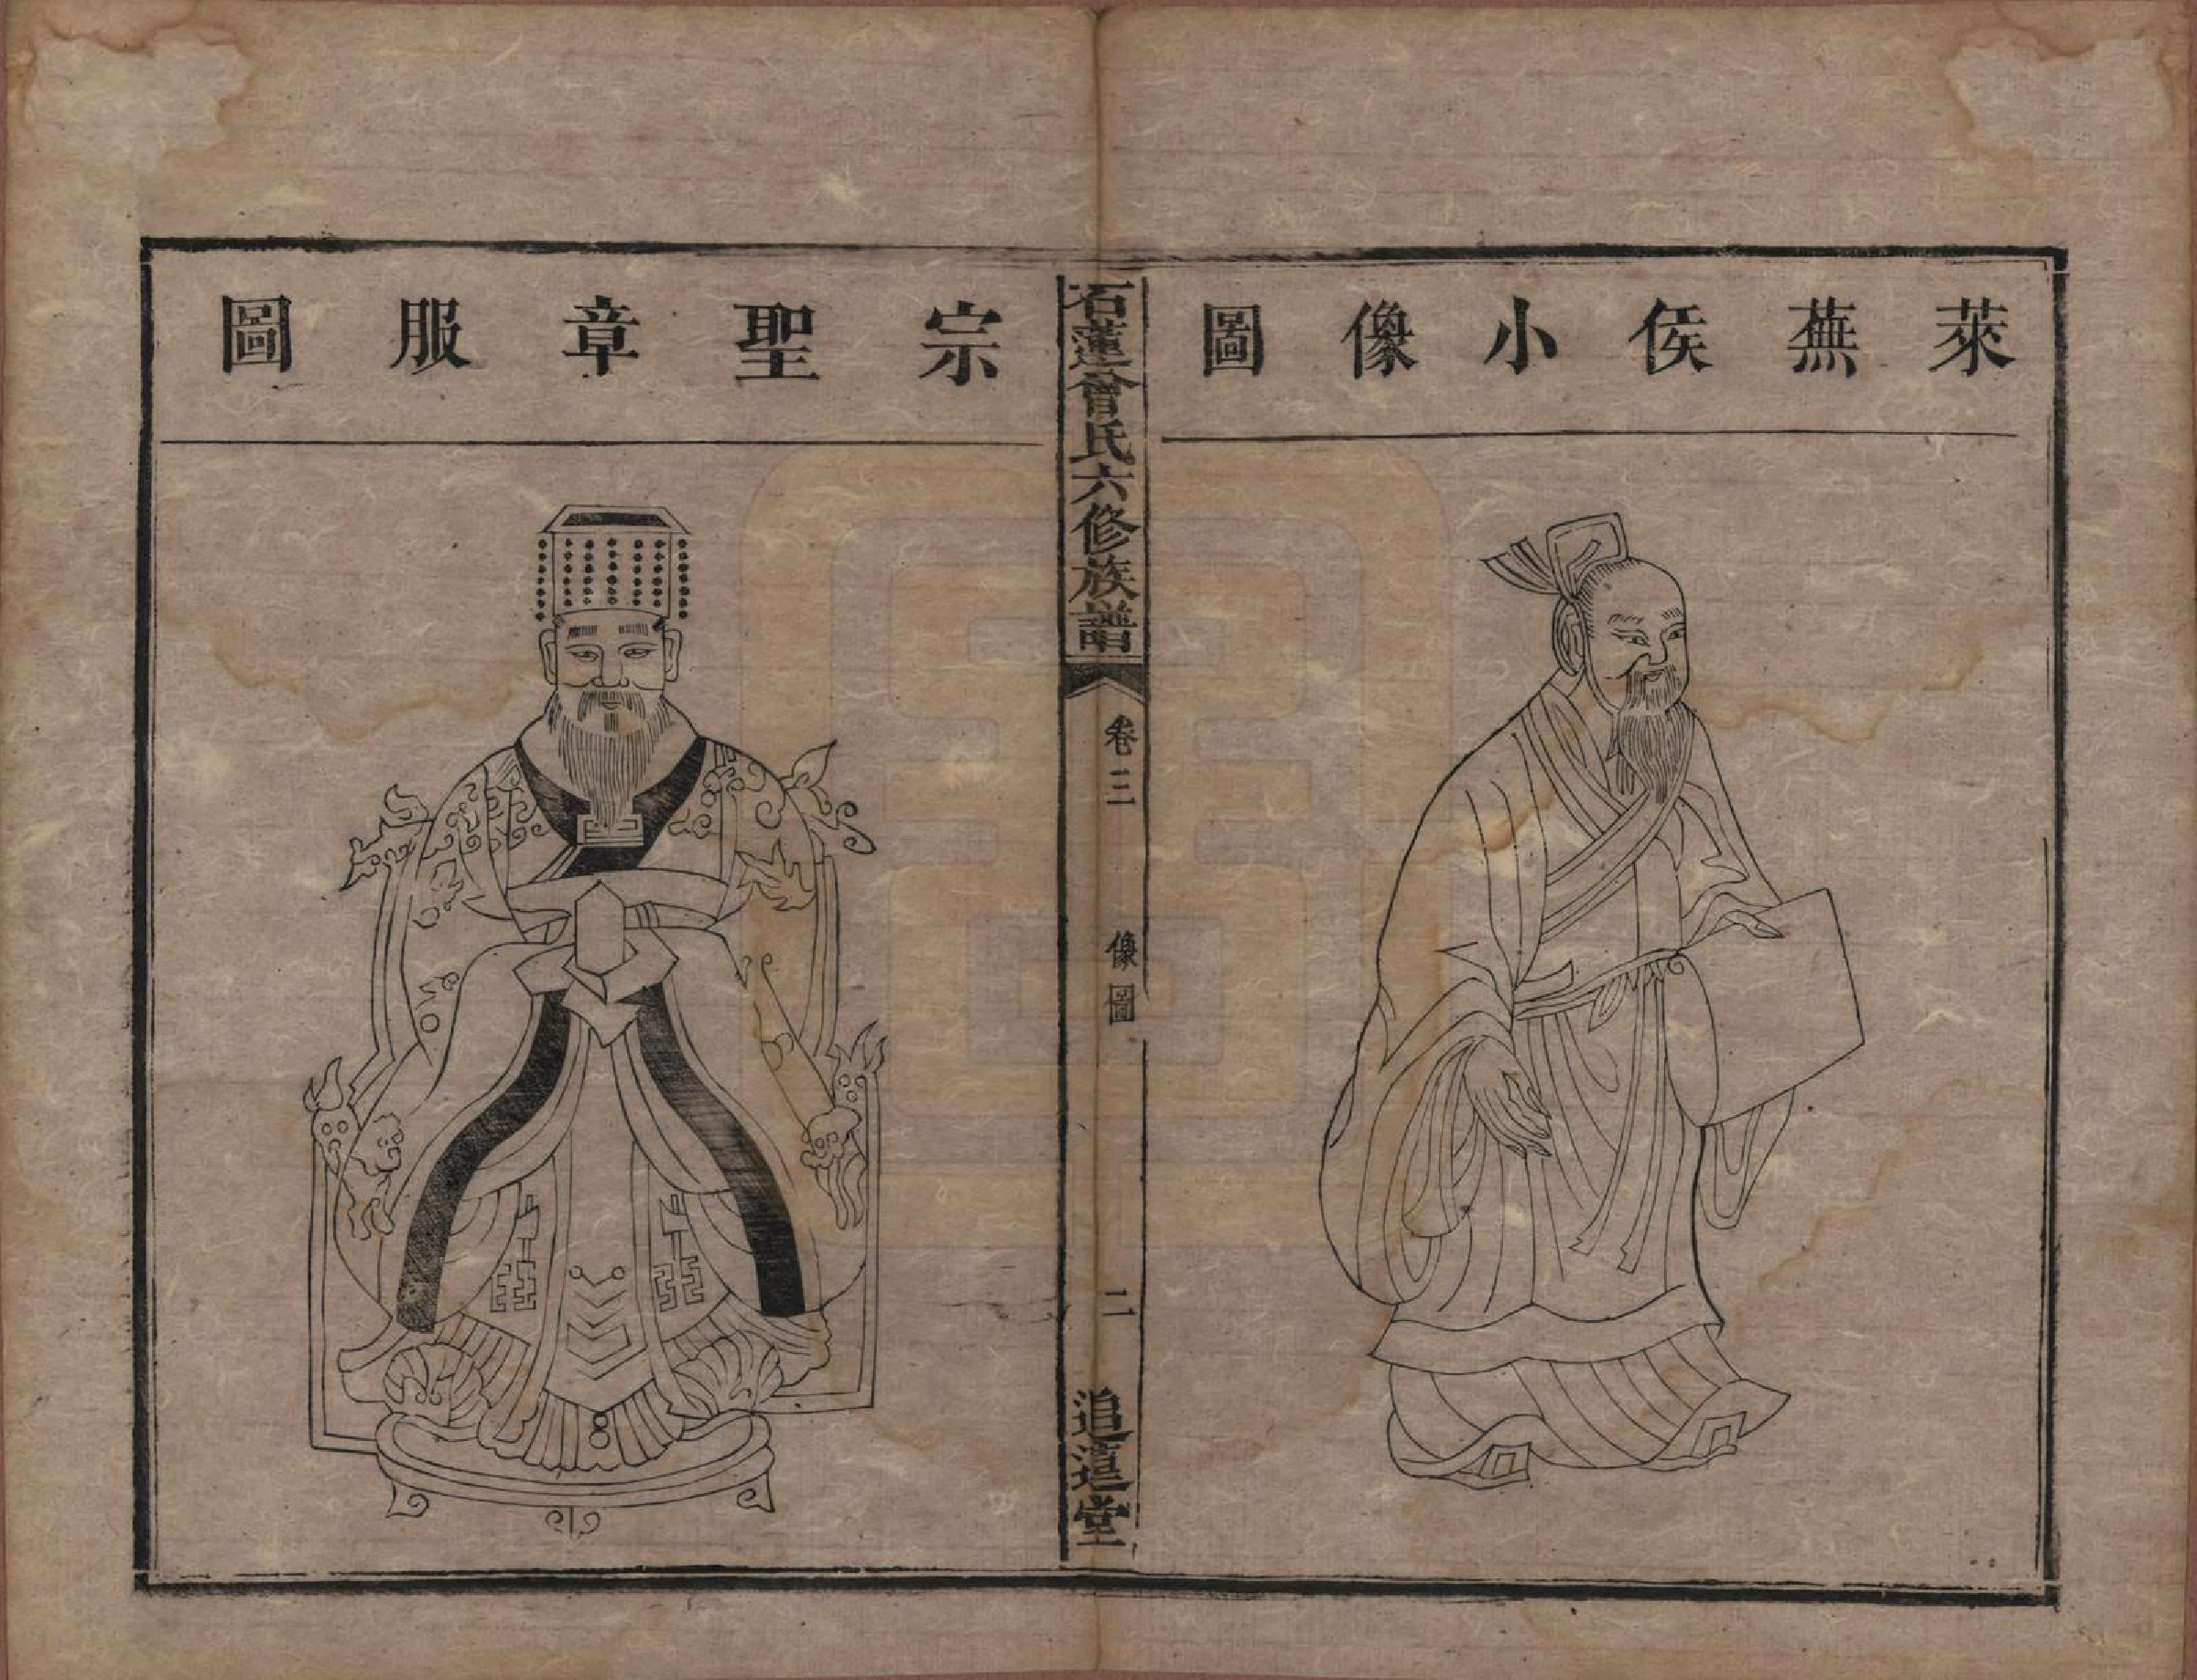 萊蕪侯小像圖
石蓮曾氏六修族譜
卷三
像圖
二
追遠堂
宗聖章服圖